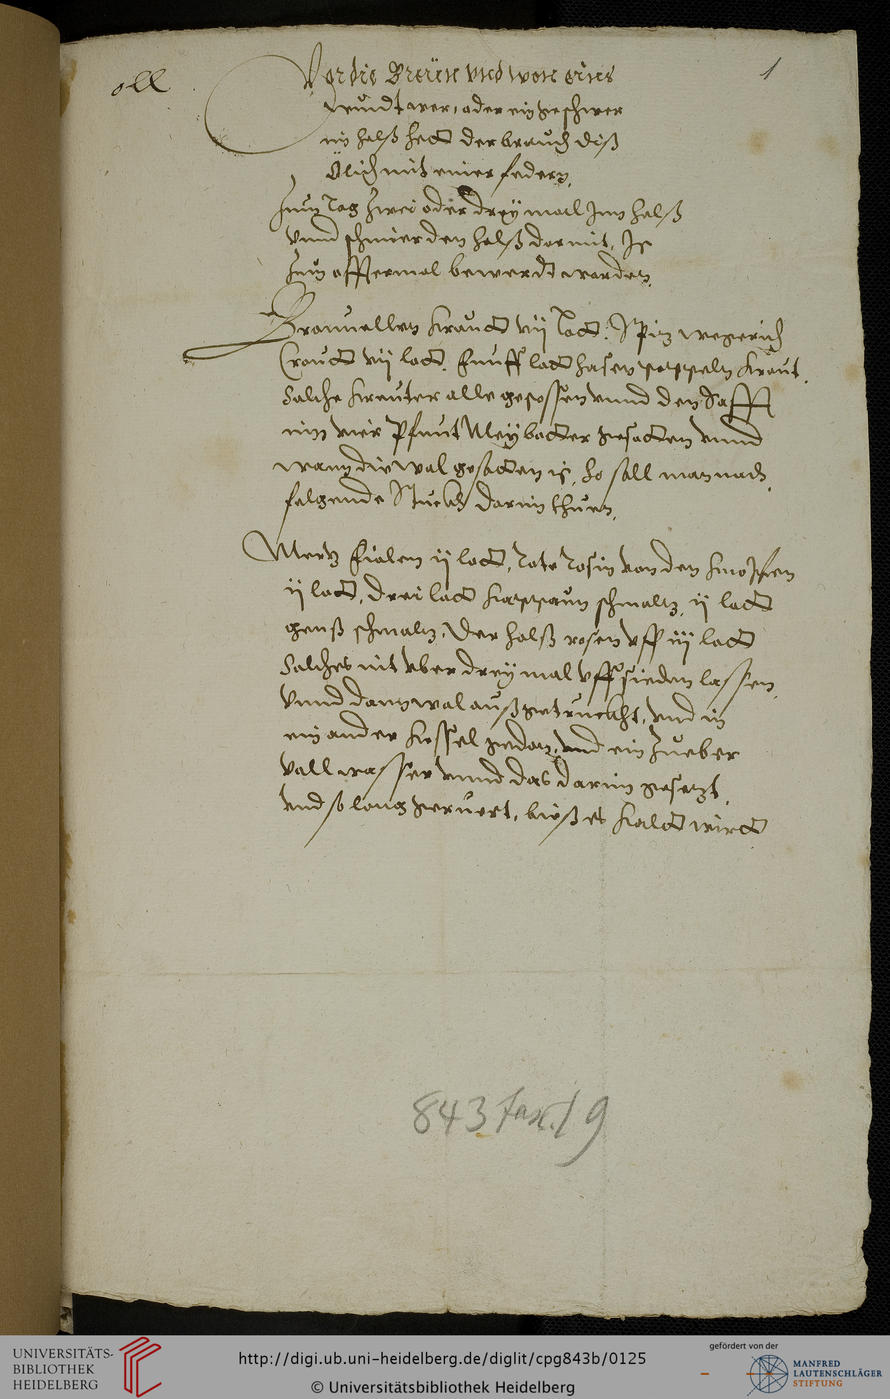 öll
1
Vor die Breün vnd wen eines
wundt wer, oder ein geschwer
im halß hett der brauch diß
Ölich mit einer federn,
Zum tag zwei oder drey mall Inn halß
vnnd schmier den halß darmit, Is
zum offtermal bewerdt worden.
Braunellen krautt vij lott. Spitz wegerich
Crautt vij lott. fünff lott hasen pappeln kraut.
Solche kreuter alle gestossen vnnd den Safft
inn vier Pfunt Meybotter gesotten vnnd
wann die wol gesotten is, so soll man nach
folgende Stuckh darin thuen,
Mertz fiolen ij lott, rote rosin von den knopfen
ij lott, drei lott kappaun schmaltz, ij lott
genß schmaltz, der halß rosen vff iij lott
Solches nit vber drey mal vff sieden lassen,
vnnd dann wol außgetruckht, vnd in
ein ander kessel gedan, vnd ein Zueber
voll wasser vnnd das darin gesetzt,
vnd so lang geruert, bieß es kaltt wirtt
843 Fasc. 19
UNIVERSITÄTS-
BIBLIOTHEK
HEIDELBERG
http://digi.ub.uni-heidelberg.de/diglit/cpg843b/0125
© Universitätsbibliothek Heidelberg
gefördert von der
MANFRED
LAUTENSCHLÄGER
STIFTUNG